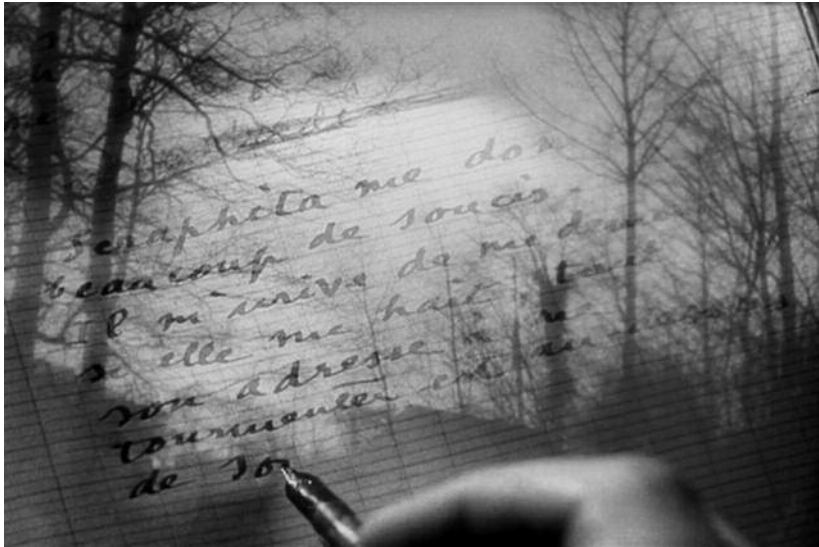 Seraphita me don
beaucoup de soucis.
Il m'arrive de me dema
si elle me hait, ta
son adresse à me
tourmenter est au
de so